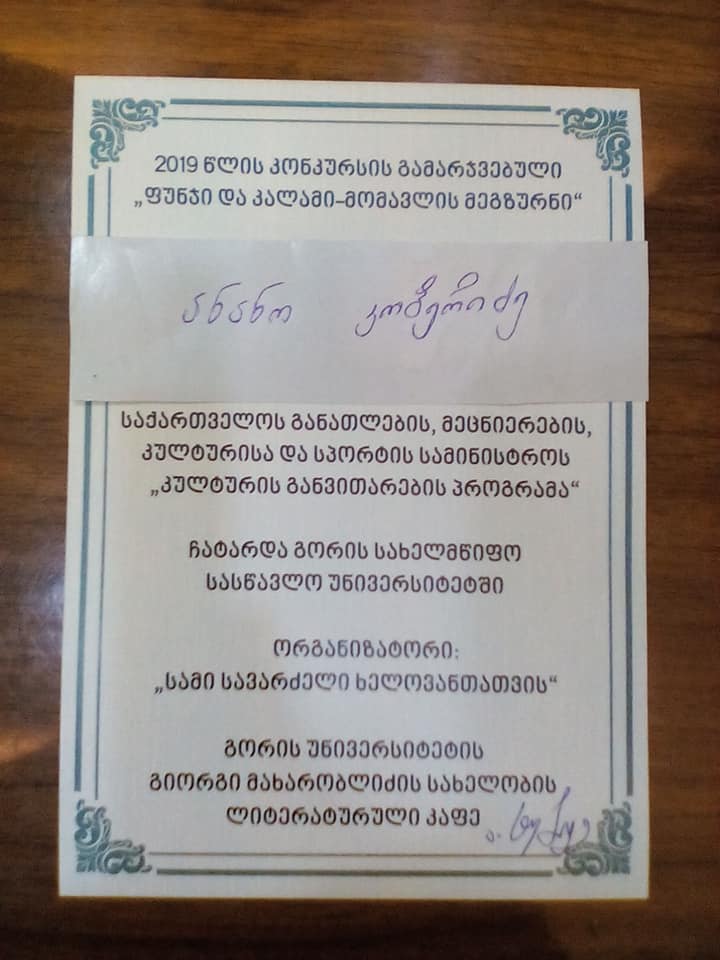 2019 წლის კონკურსის გამარჯვებული
„ფუნჯი და კალამი-მომავლის მეგზურნი“
ანანო
საქართველოს განათლების, მეცნიერების,
კულტურისა და სპორტის სამინისტროს
„კულტურის განვითარების პროგრამა“
ჩატარდა გორის სახელმწიფო
სასწავლო უნივერსიტეტში
ორგანიზატორი:
„სამი სავარძელი ხელოვანთათვის“
გორის უნივერსიტეტის
გიორგი მახარობლიძის სახელობის
ლიტერატურული კაფე